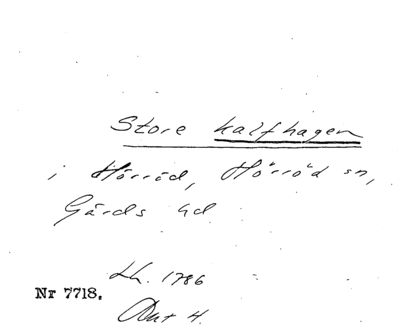 Store kalfhagen
i Hörröd, Hörröd sn,
Gärds hd
Lh. 1786
Nr 7718.
Akt 4.